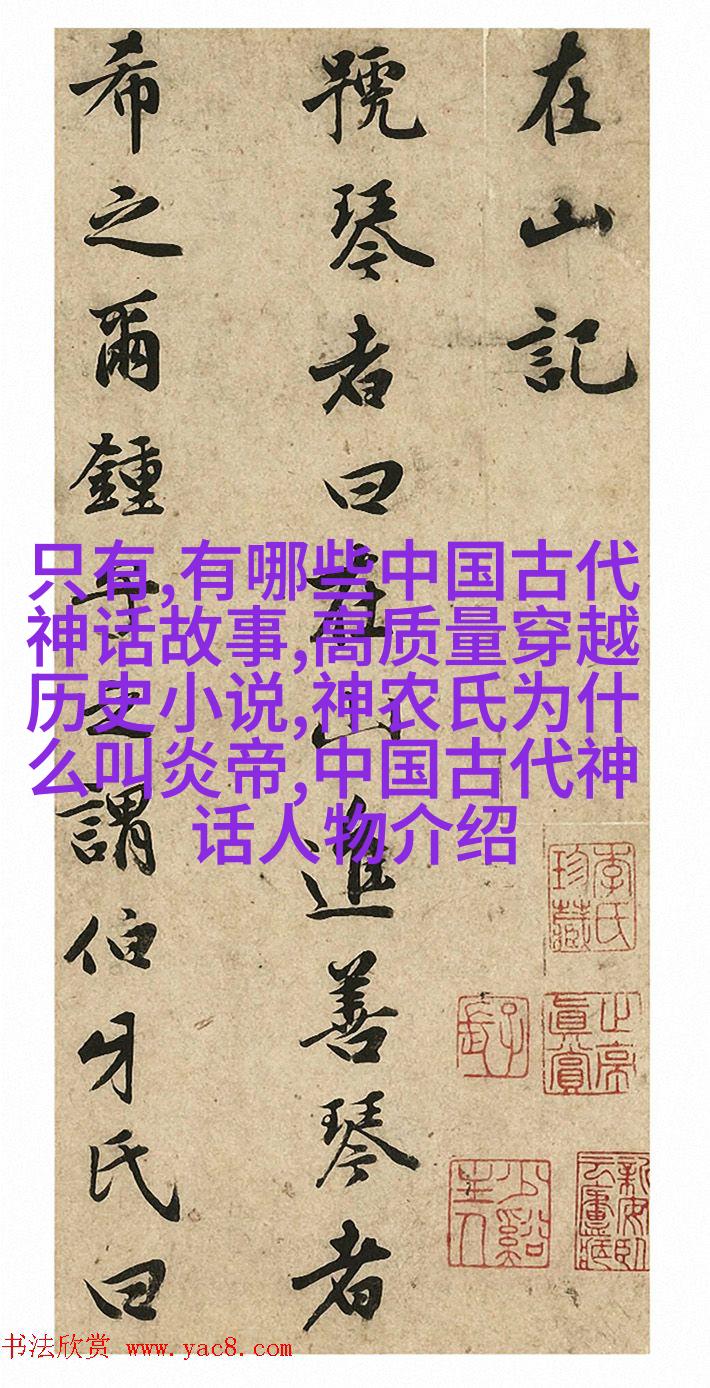 在山記
號琴者曰在山進善琴者
希之爾鍾之謂伯牙氏曰
只有,有哪些中国古代
神话故事,高质量穿越
历史小说,神农氏为什
么叫炎帝,中国古代神
话人物介绍
李氏珍藏
少谿主人
书法欣赏 www.yac8.com